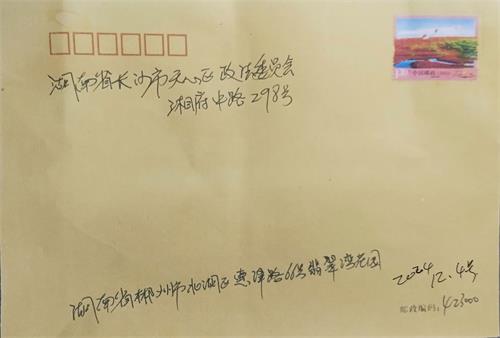 湖南省长沙市天心区政法委员会
湘府中路298号
中国邮政
湖南省郴州市北湖区惠泽路66号翡翠湾花园
2024.12.4号
邮政编码:423000